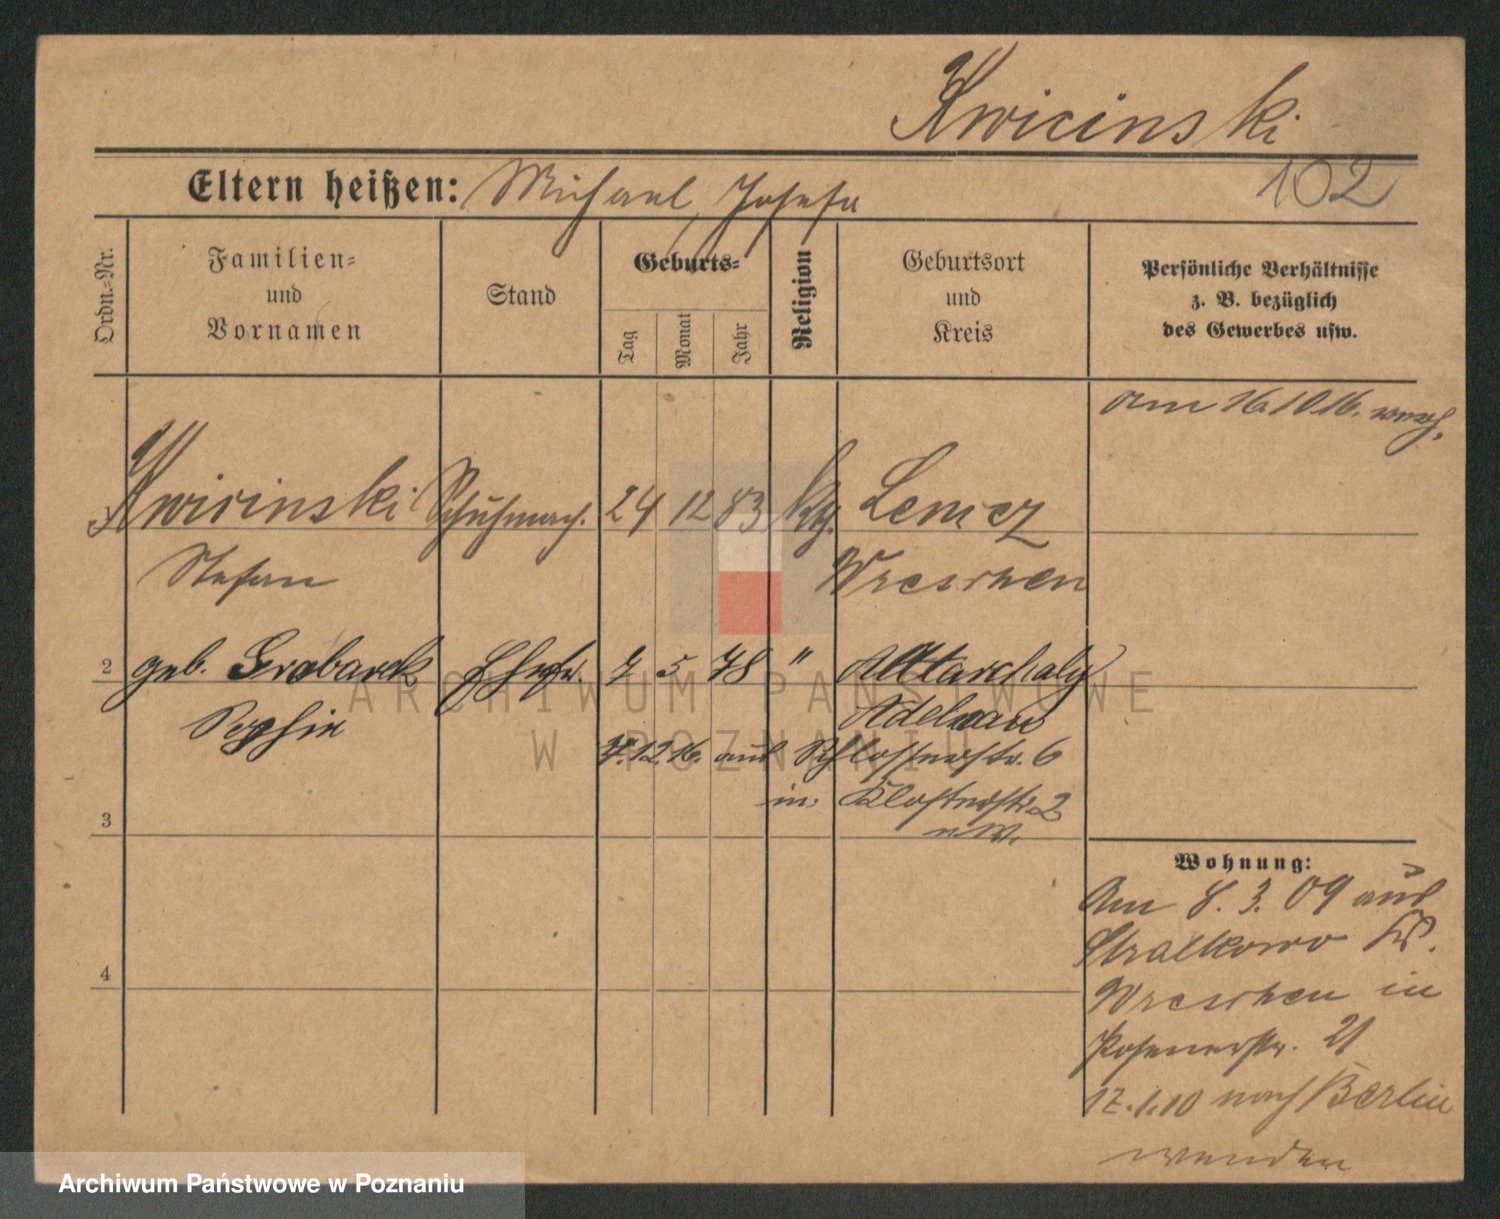 Kwicinski
102
Eltern heißen: Michael, Josefa
Ordn.-Nr.
Familien-
und
Vornamen
Stand
Geburts-
Tag
Monat
Jahr
Religion
Geburtsort
und
Kreis
Persönliche Verhältnisse
z. B. bezüglich
des Gewerbes usw.
am 16.10.16.
Kwicinski Schuhmach. 24 12 83 Kg. Lemez
Stefan Wreschen
2 geb. Grobarek Ehefr. 7 5 78 " 
Sophie Adelnau
7.12.16. aus Schlosserstr. 6
in Klosterstr. 2
n. W.
3
4
Wohnung:
Am 8. 3. 09 aus
Stralkowo Kr.
Wreschen in
Posenerstr. 21
17.1.10 nach Berlin
wenden
ARCHIWUM PAŃSTWOWE
W POZNANIU
Archiwum Państwowe w Poznaniu